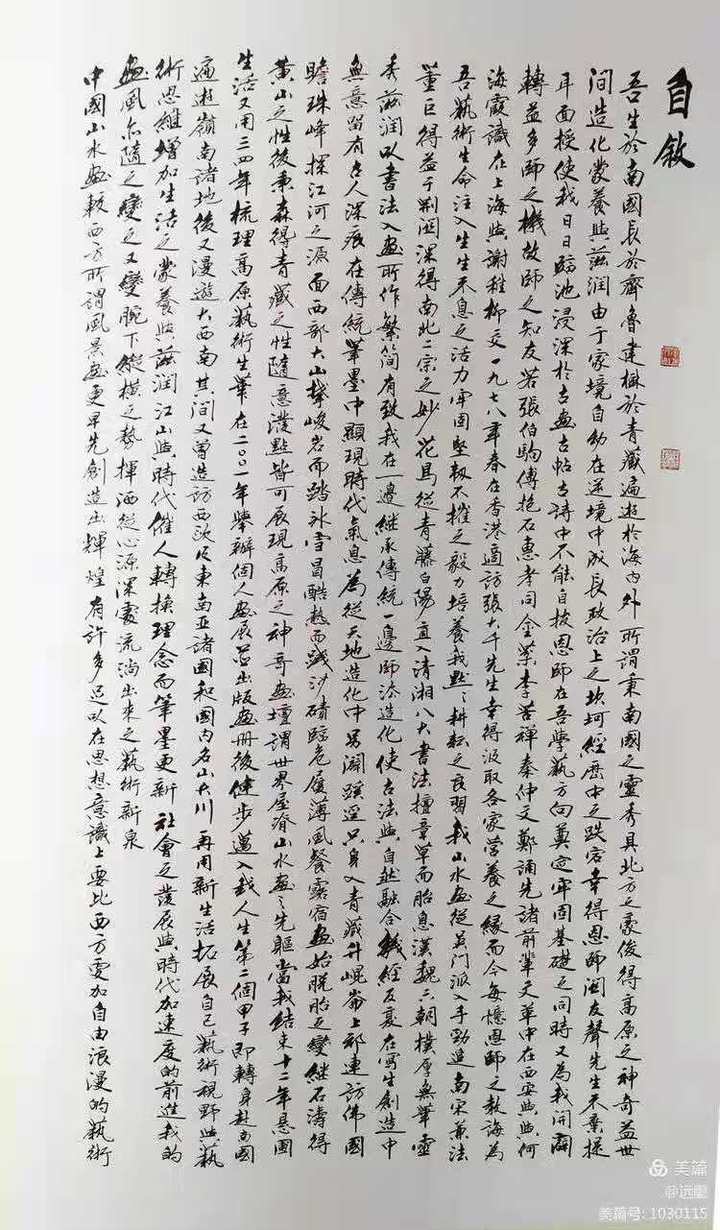 自敘
吾生於南國長於齊魯建樹於青藏遍遊於海內外所謂秉南國之靈秀具北方之豪俊得高原之神奇益世
間造化蒙養與滋润由于家境自幼在逆境中成長政治上之坎坷經歷中之跌宕幸得恩師閻友聲先生不棄提
耳面授使我日日臨池浸深於古畫古帖古詩中不能自拔恩師在吾學藝方向奠定牢固基礎之同時又為我開闢
轉益多師之機故師之知友若張伯駒傅抱石惠孝同金業李苦禪秦仲文鄭誦先諸前輩文革中在西安與何
海霞識在上海與謝稚柳交一九七八年春在香港適訪張大千先生幸得汲取各家营養之緣而今每憶恩師之教誨為
吾藝術生命注入生生不息之活力牢固堅韌不摧之毅力培養我默々耕耘之良習我山水畫從黃門派入手勁追南宋兼法
董巨得益于荆關深得南北二宗之妙花鳥從青藤白陽直入清湘八大書法擅章草而胎息漢魏六朝樸厚無華靈
秀滋润以書法入畫所作繁简有致我在一邊继承傳統一邊師法造化使古法與自然融合幾經反复在寫生創造中
無意留有古人深痕在傳統筆墨中顯現時代氣息為從天地造化中另闢蹊徑只身入青藏升崐崙上祁連訪佛國
瞻珠峰探江河之源面西部大山犛峻岩而踏冰雪冒酷熱而踐沙磧臨危履薄風餐露宿畫始脱胎之變继石濤得
黄山之性後秉森得青藏之性隨意潑點皆可展現高原之神哥畫壇謂世界屋脊山水畫之先軀當我结束十二年悬圃
生活又用三四年梳理高原藝術生筆在二〇〇一年舉辦個人畫展並出版畫册後健步邁入我人生第二個甲子即轉身赴南國
遍遊嶺南諸地後又漫遊大西南其间又曾造訪西欧及東南亚諸國和國内名山大川再用新生活拓展自己藝術視野與藝
術思維增加生活之蒙養與滋润江山與時代催人轉换理念而筆墨更新社會之發展與時代加速度的前進我的
畫風亦隨之變之又變腕下縱横之勢揮洒從心源深處流淌出来之藝術新泉
中國山水畫較西方所謂風景畫更早先創造出輝煌有許多足以在思想意識上要比西方更加自由浪漫的藝術
美篇
@远墨
美篇号: 1030115